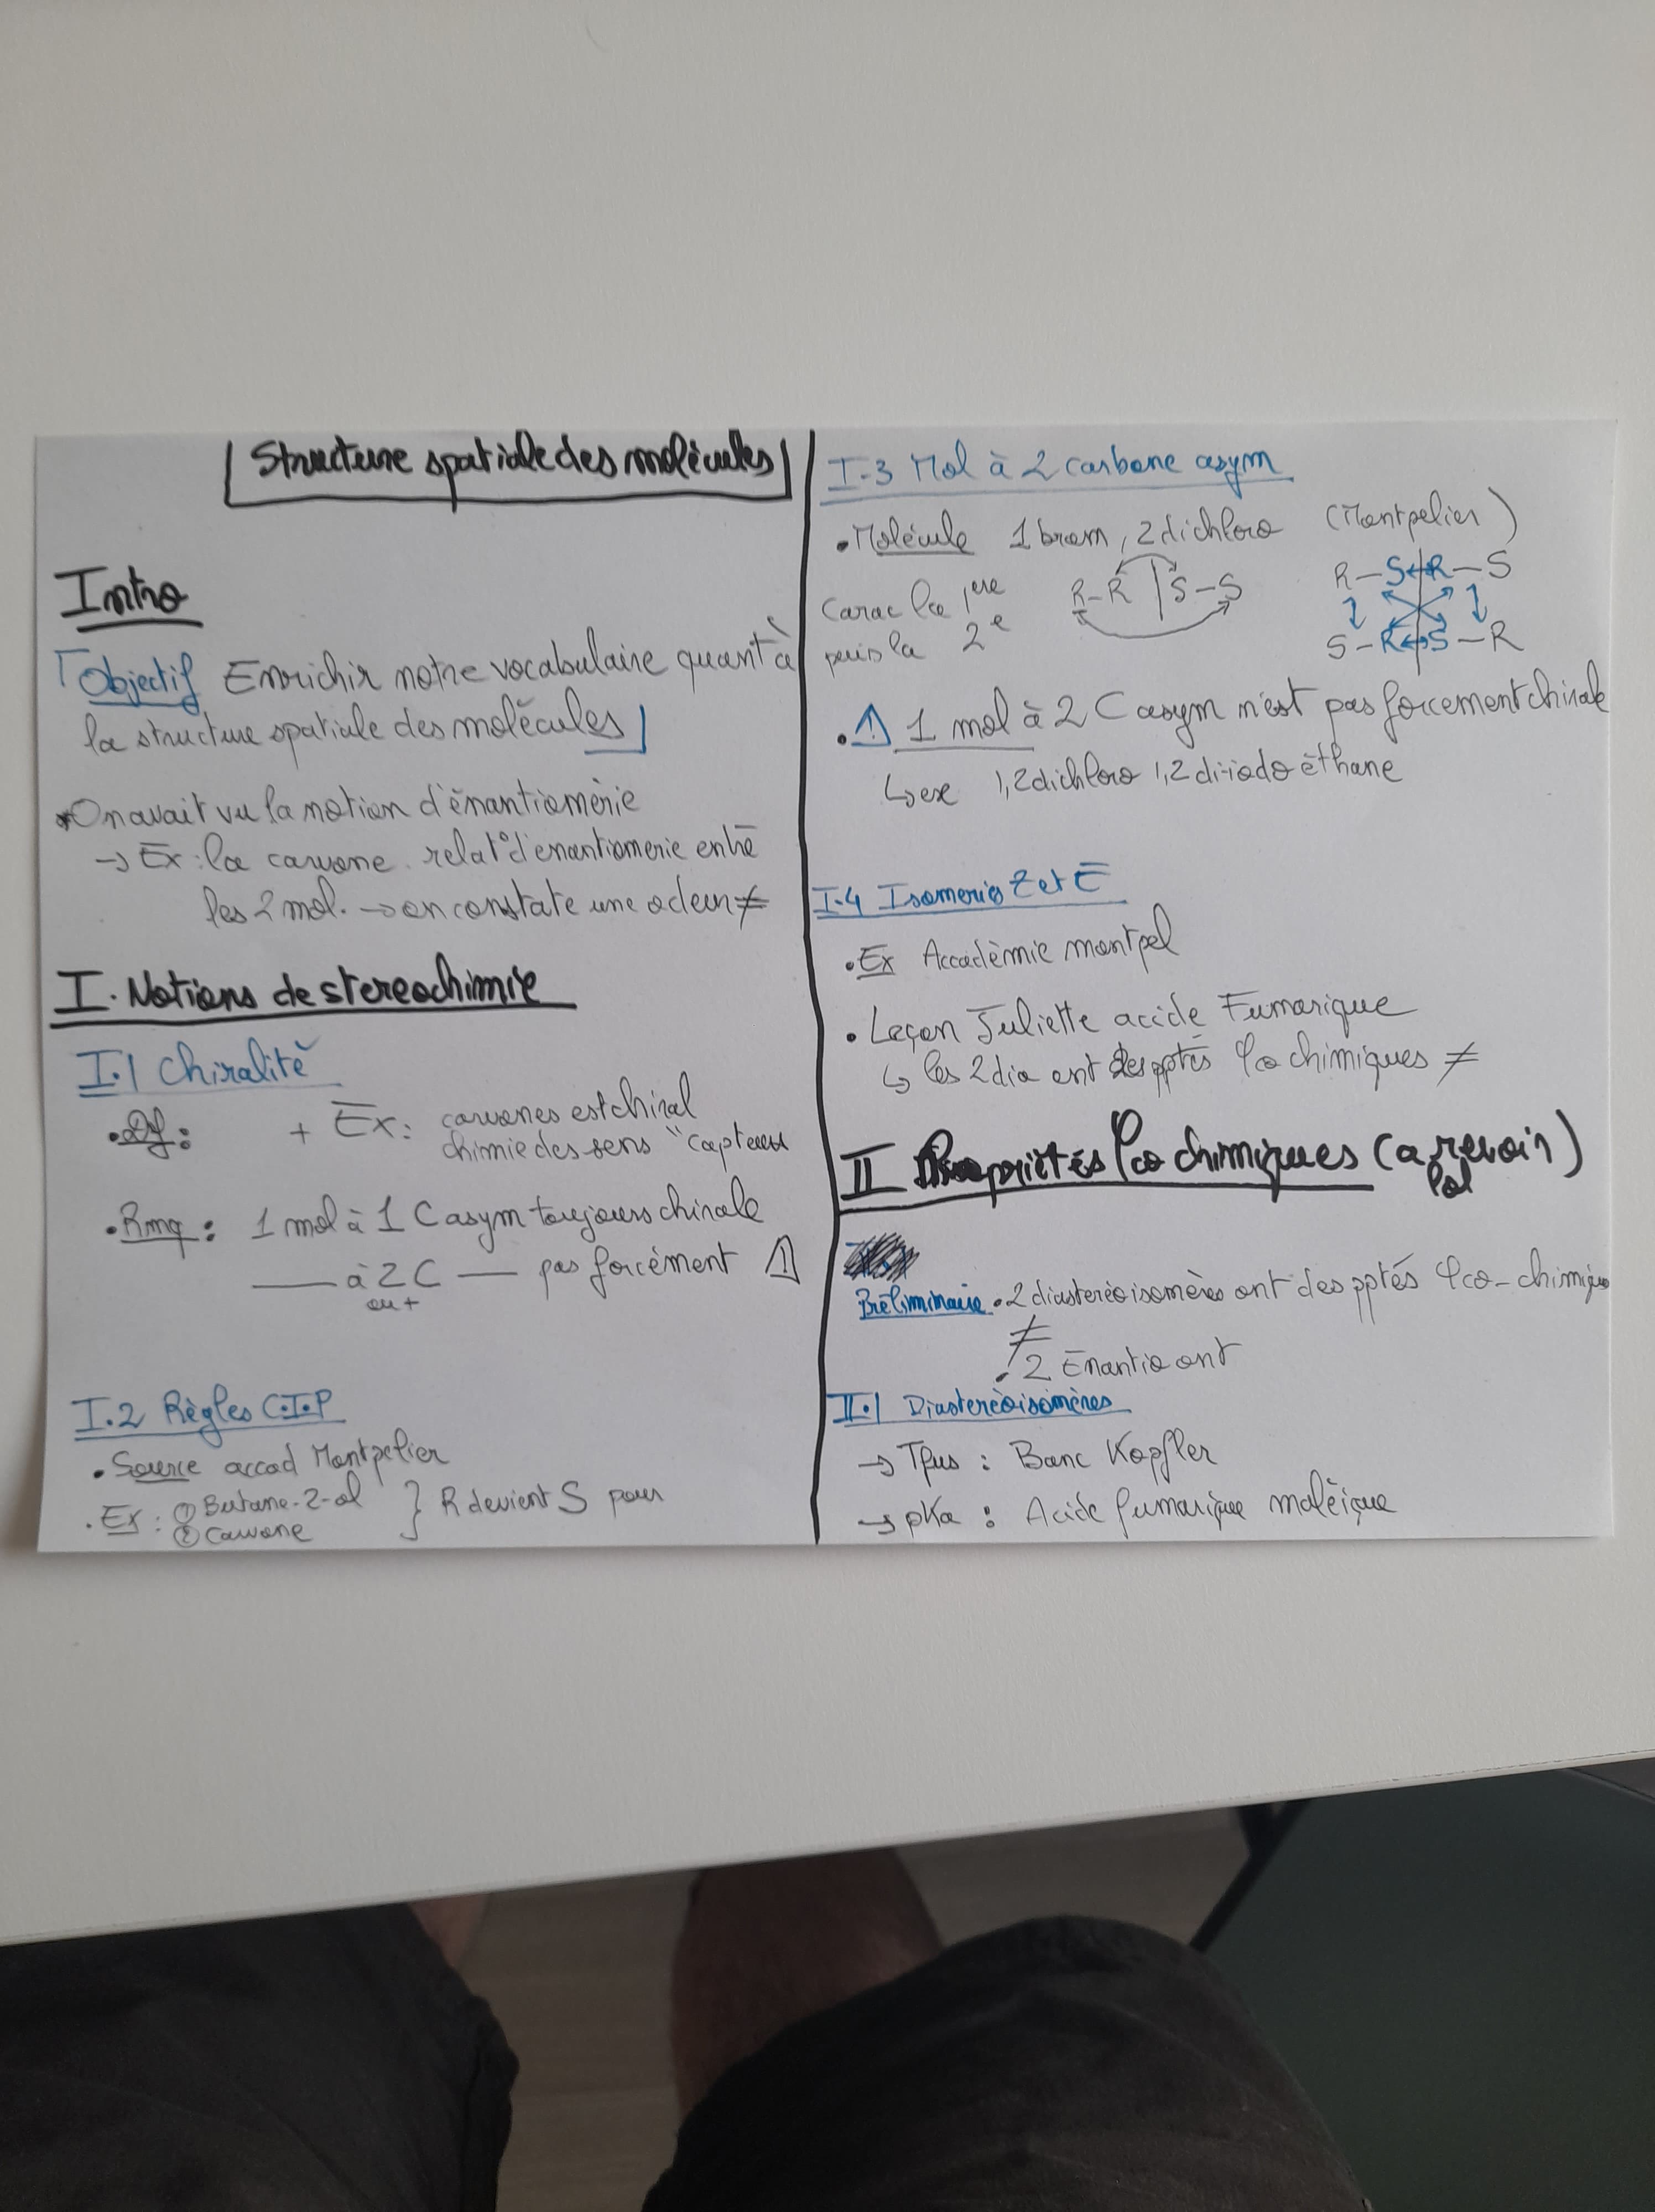 Structure spatiale des molécules
Intro
Objectif Enrichir notre vocabulaire quant à
la structure spatiale des molécules
On avait vu la notion d'énantiomérie
→ Ex : la carvone. relat° d'enantiomerie entre
les 2 mol. → on constate une odeur ≠
I. Notions de stereochimie
I.1 Chiralité
• Df : + Ex : carvones est chiral
chimie des sens "capteur
• Rmq : 1 mol à 1 C asym toujours chirale
—— à 2 C —— pas forcément ⚠
ou +
I.2 Règles C.I.P
• Source accad Montpelier
• Ex : ① Butane-2-ol } R devient S pour
② Carvone
I-3 Mol à 2 carbone asym
• Molécule 1 brom, 2 dichloro (Montpelier)
Carac la 1ere R-R | S-S R-S ↔ R-S
puis la 2e S-R ↔ S-R
• ⚠ 1 mol à 2 C asym n'est pas forcement chirale
↳ ex 1,2 dichloro 1,2 di-iodo éthane
I.4 Isomerie Z et E
• Ex Accadémie montpel
• Leçon Juliette acide Fumarique
↳ les 2 dia ont des pptés φco chimiques ≠
II Propriétés φco chimiques (a revoir)
Pol
Préliminaire • 2 diastereoisomères ont des pptés φco-chimique
≠
• 2 Enantio ont
II.1 Diastereoisomères
→ Tfus : Banc Kopfler
→ pKa : Acide fumarique maléique